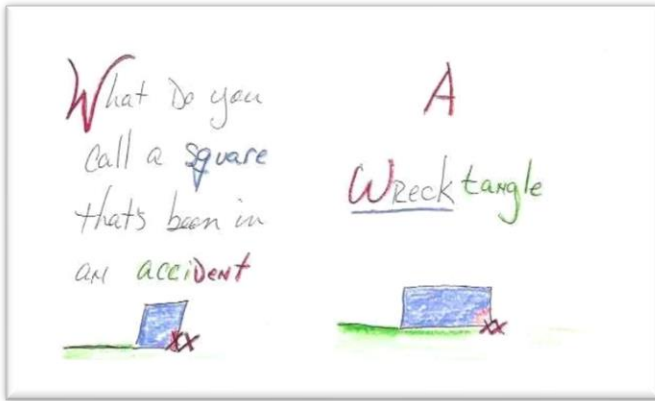 What Do you
call a square
that's been in
an acciDent
xx
A
WRecktangle
xx